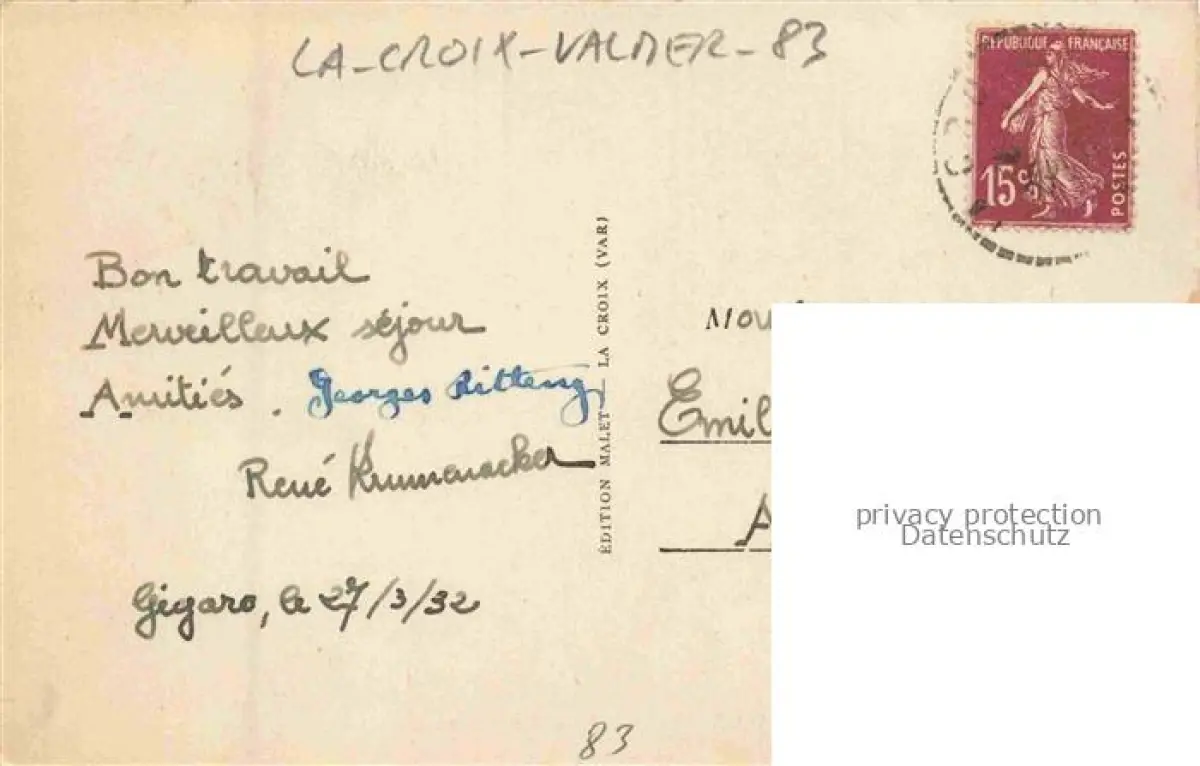 LA-CROIX-VALMER-83
RÉPUBLIQUE FRANÇAISE
15c
POSTES
Bon travail
Merveilleux séjour
Amitiés. Georges
René Krumenacker
Gigaro, le 27/3/32
ÉDITION MALET - LA CROIX (VAR)
Emil
A
privacy protection
Datenschutz
83